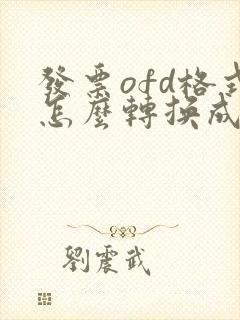 發票ofd格式
怎麼轉換成
劉震武